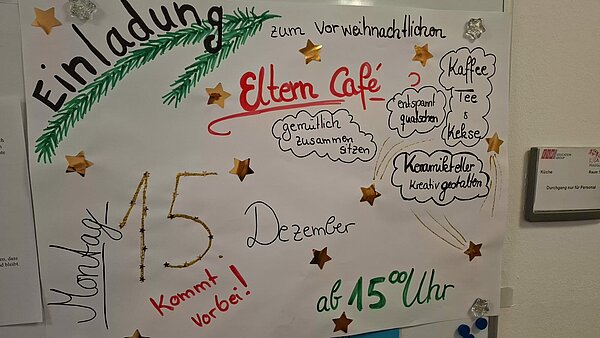 Einladung
zum Vorweihnachtlichen
Eltern Café
gemütlich
zusammen
sitzen
entspannt
quatschen
Kaffee
Tee
&
Kekse
Keramikteller
kreativ gestalten
Montag
15.
Dezember
Kommt
vorbei!
ab 15⁰⁰ Uhr
Küche
Durchgang nur für Personal